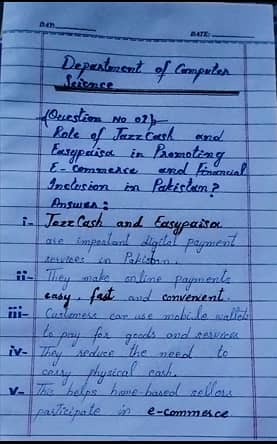 DAY:
DATE:
Department of Computer
Science
(Question No 02)
Role of JazzCash and
Easypaisa in Promoting
E-commerce and Financial
Inclusion in Pakistan?
Answer:
i- JazzCash and Easypaisa
are important digital payment
services in Pakistan.
ii- They make online payments
easy, fast and convenient.
iii- Customers can use mobile wallets
to pay for goods and services
iv- They reduce the need to
carry physical cash.
v- This helps home-based sellers
participate in e-commerce